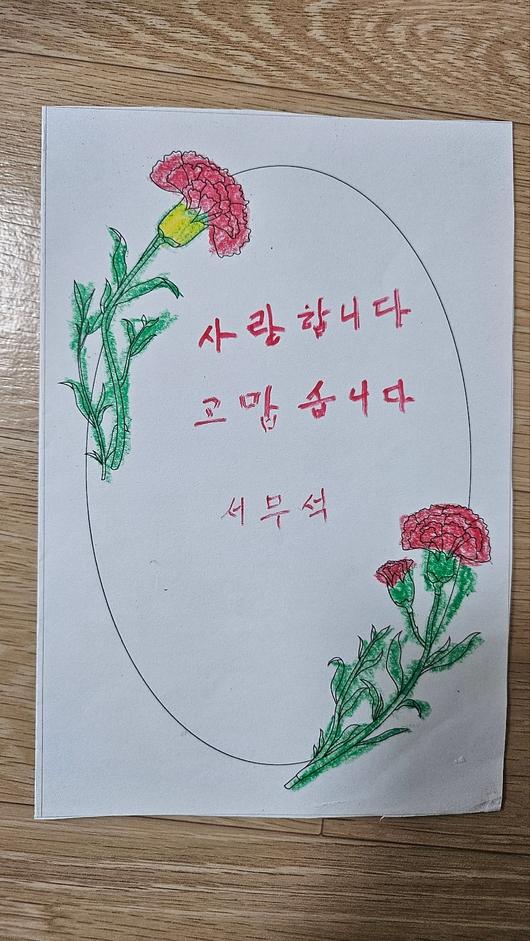 사랑합니다
고맙습니다
서무석